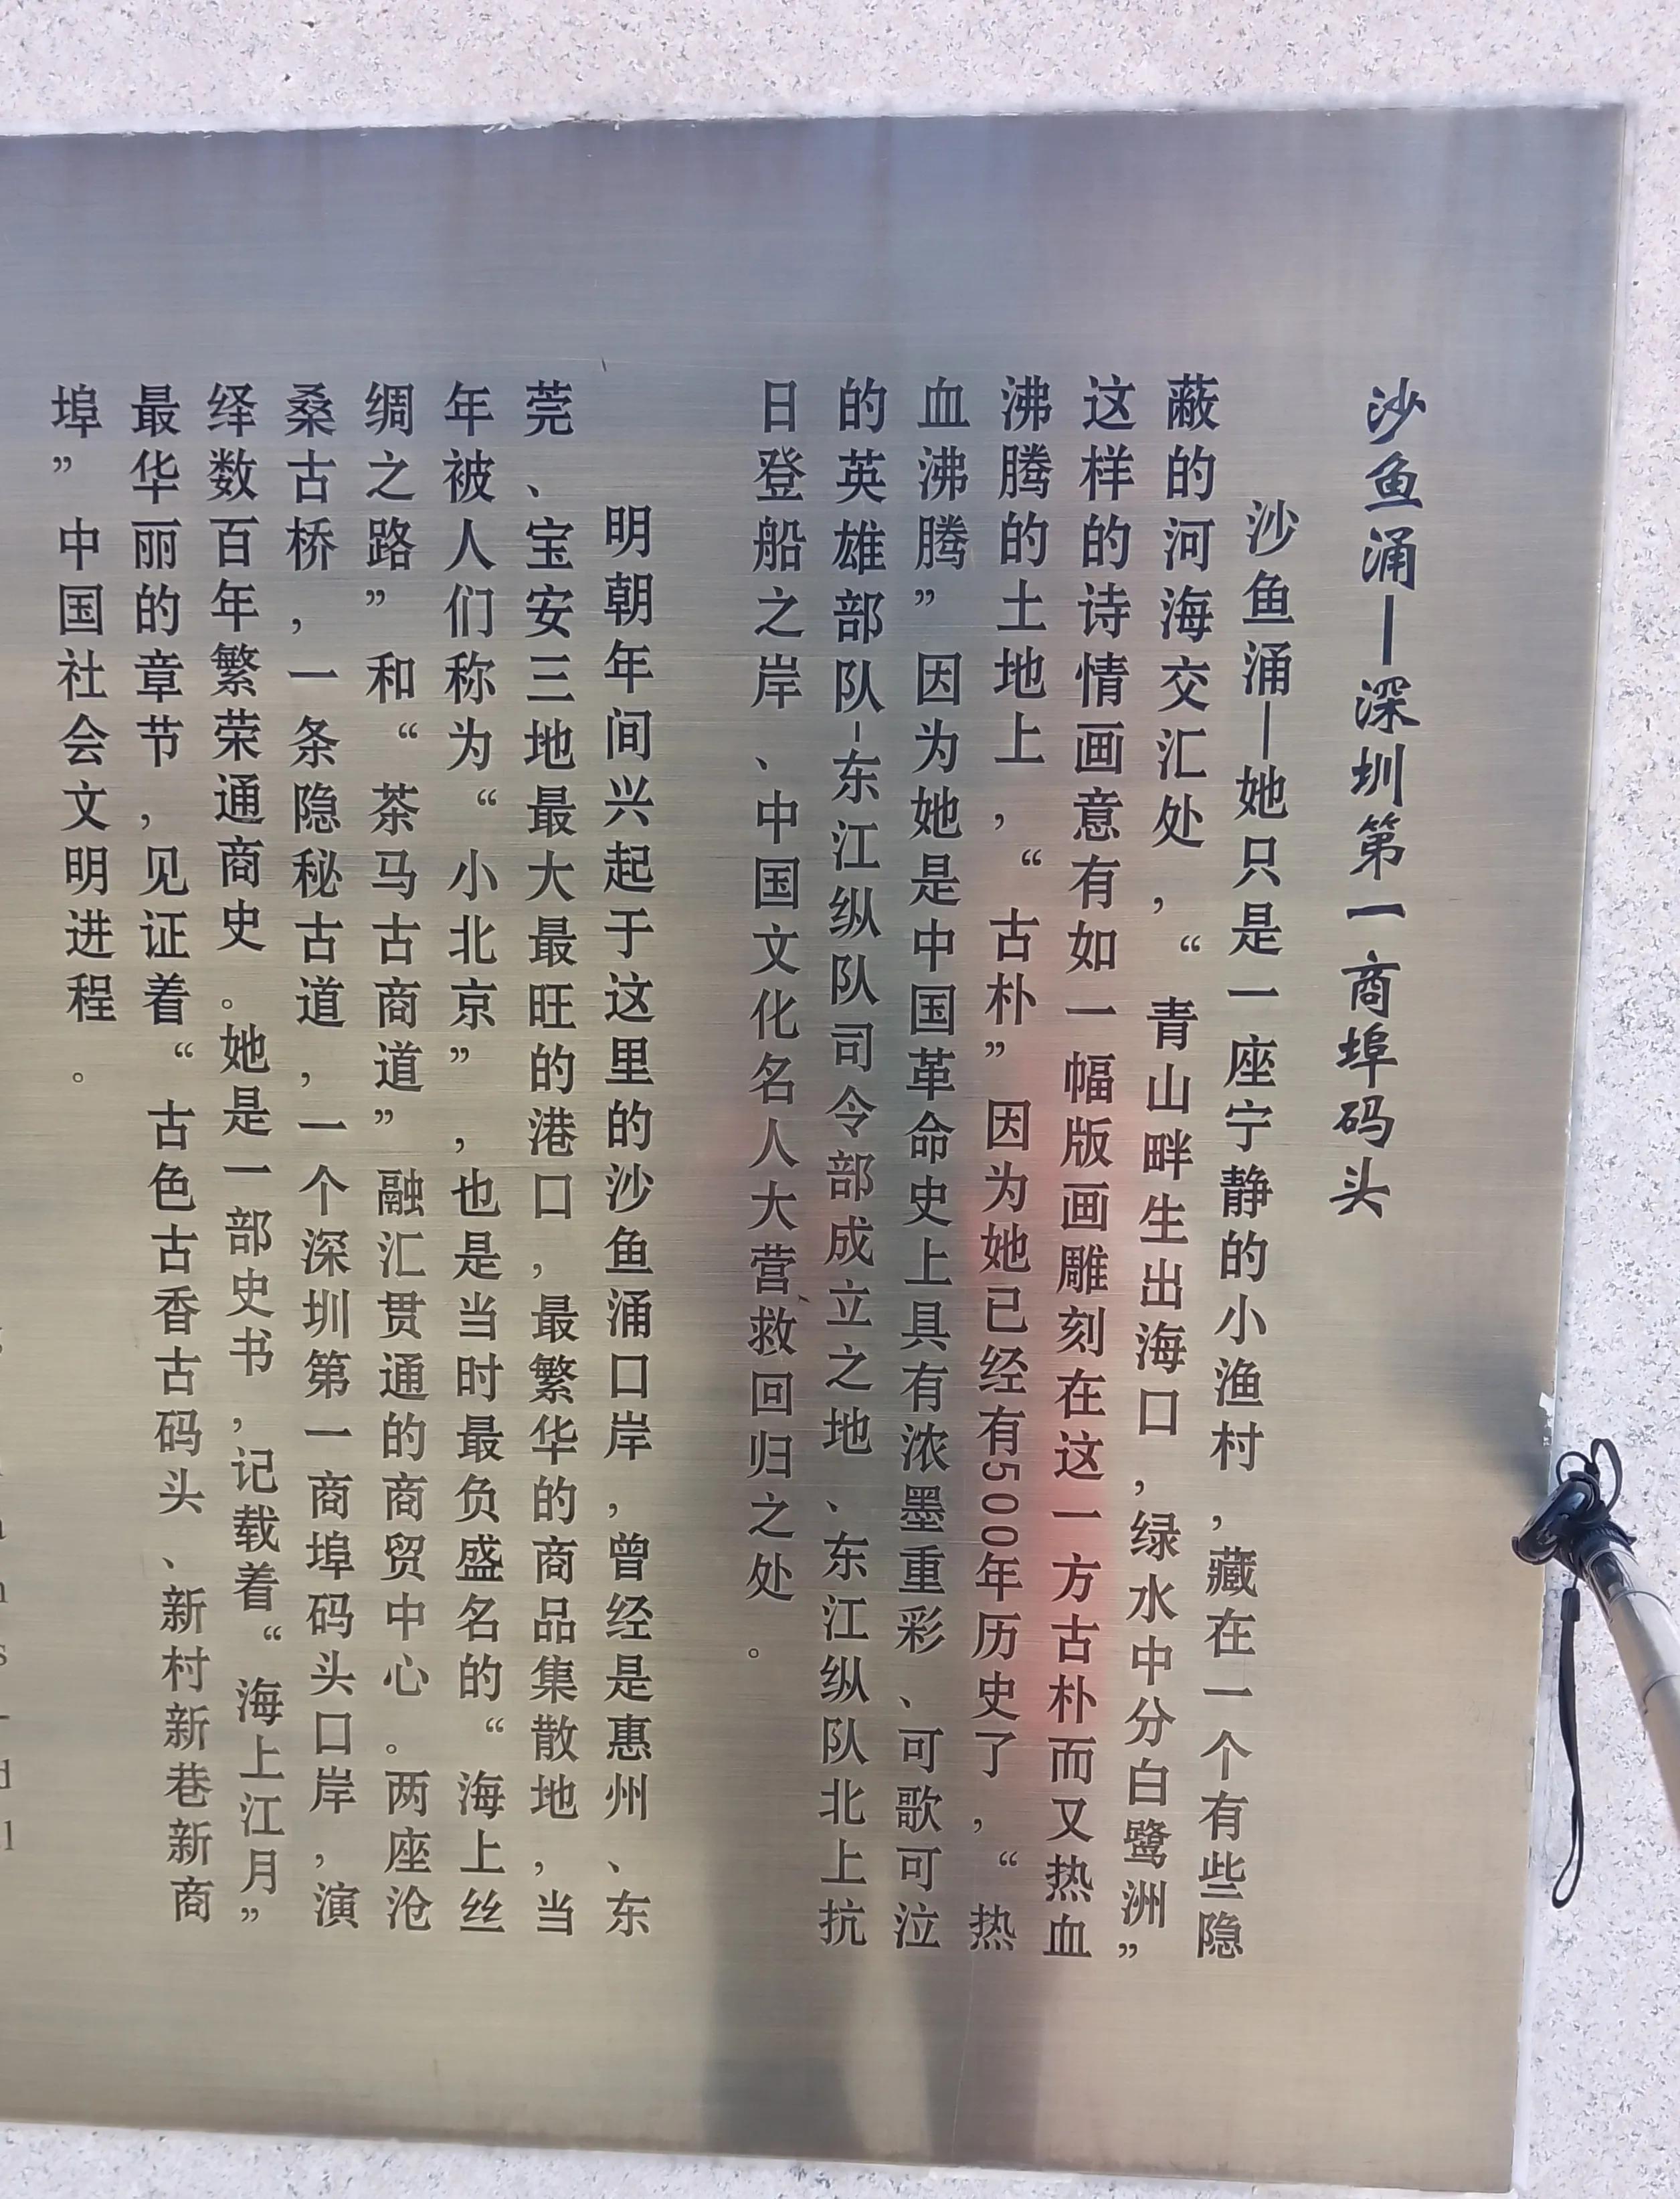 沙鱼涌—深圳第一商埠码头
沙鱼涌—她只是一座宁静的小渔村,藏在一个有些隐
蔽的河海交汇处,“青山畔生出海口,绿水中分白鹭洲”
这样的诗情画意有如一幅版画雕刻在这一方古朴而又热血
沸腾的土地上,“古朴”因为她已经有500年历史了,“热
血沸腾”因为她是中国革命史上具有浓墨重彩、可歌可泣
的英雄部队-东江纵队司令部成立之地、东江纵队北上抗
日登船之岸、中国文化名人大营救回归之处。
明朝年间兴起于这里的沙鱼涌口岸,曾经是惠州、东
莞、宝安三地最大最旺的港口,最繁华的商品集散地,当
年被人们称为“小北京”,也是当时最负盛名的“海上丝
绸之路”和“茶马古商道”融汇贯通的商贸中心。两座沧
桑古桥,一条隐秘古道,一个深圳第一商埠码头口岸,演
绎数百年繁荣通商史。她是一部史书,记载着“海上江月”
最华丽的章节,见证着“古色古香古码头、新村新巷新商
埠”中国社会文明进程。